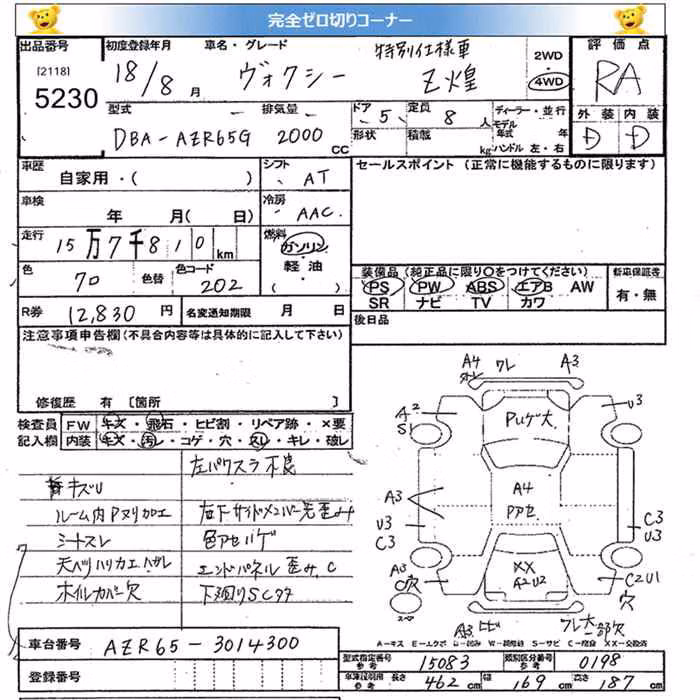 完全ゼロ切りコーナー
出品番号 初度登録年月 車名・グレード 特別仕様車 2WD 評価点
[2118] 5230 18/8月 ヴォクシー Z煌 4WD RA
型式 排気量 ドア 定員 ディーラー・並行 外装 内装
DBA-AZR65G 2000cc 5 8人 モデル年式 年 D D
形状 積載 kg ハンドル 左・右
車歴 シフト セールスポイント (正常に機能するものに限ります)
自家用・( ) AT
車検 冷房
年 月( 日) AAC
走行 燃料
15万7千810km ガソリン
軽油
( )
色 色替 色コード 装備品(純正品に限り○をつけてください) 新車保証書
70 202 PS PW ABS エアB AW 有・無
SR ナビ TV カワ
R券 12,830円 名変通知期限 月 日 後日品
注意事項申告欄(不具合内容等は具体的に記入して下さい)
修復歴 有 [箇所 ]
検査員 FW キズ・飛石・ヒビ割・リペア跡・×要
記入欄 内装 キズ・汚レ・コゲ・穴・スレ・キレ・破レ
左パワスラ不良
キズU
ルーム内Pヌリカエ 左下サイドメンバー先歪み
シートスレ 色アセハゲ
天ベリハリカエハガレ エンドパネル歪み、C
ホイルカバー欠 下廻りSCサ
A4 ワレ A3
A2 S1 Pハゲ大 U3
A3 A4 Pアセ
U3 C3 C3 U3
A3 C穴 XX A2U2 C2U1 穴
スペア
A3 ヒビ ワレ大 一部欠
A-キズ E-エクボ U-凹み W-補修跡 S-サビ C-腐食 XX-交換済
車台番号 AZR65-3014300
登録番号
型式指定番号 参考 15083 類別区分番号 参考 0198
車庫証明用 参考 長さ 462cm 幅 169cm 高さ 187cm